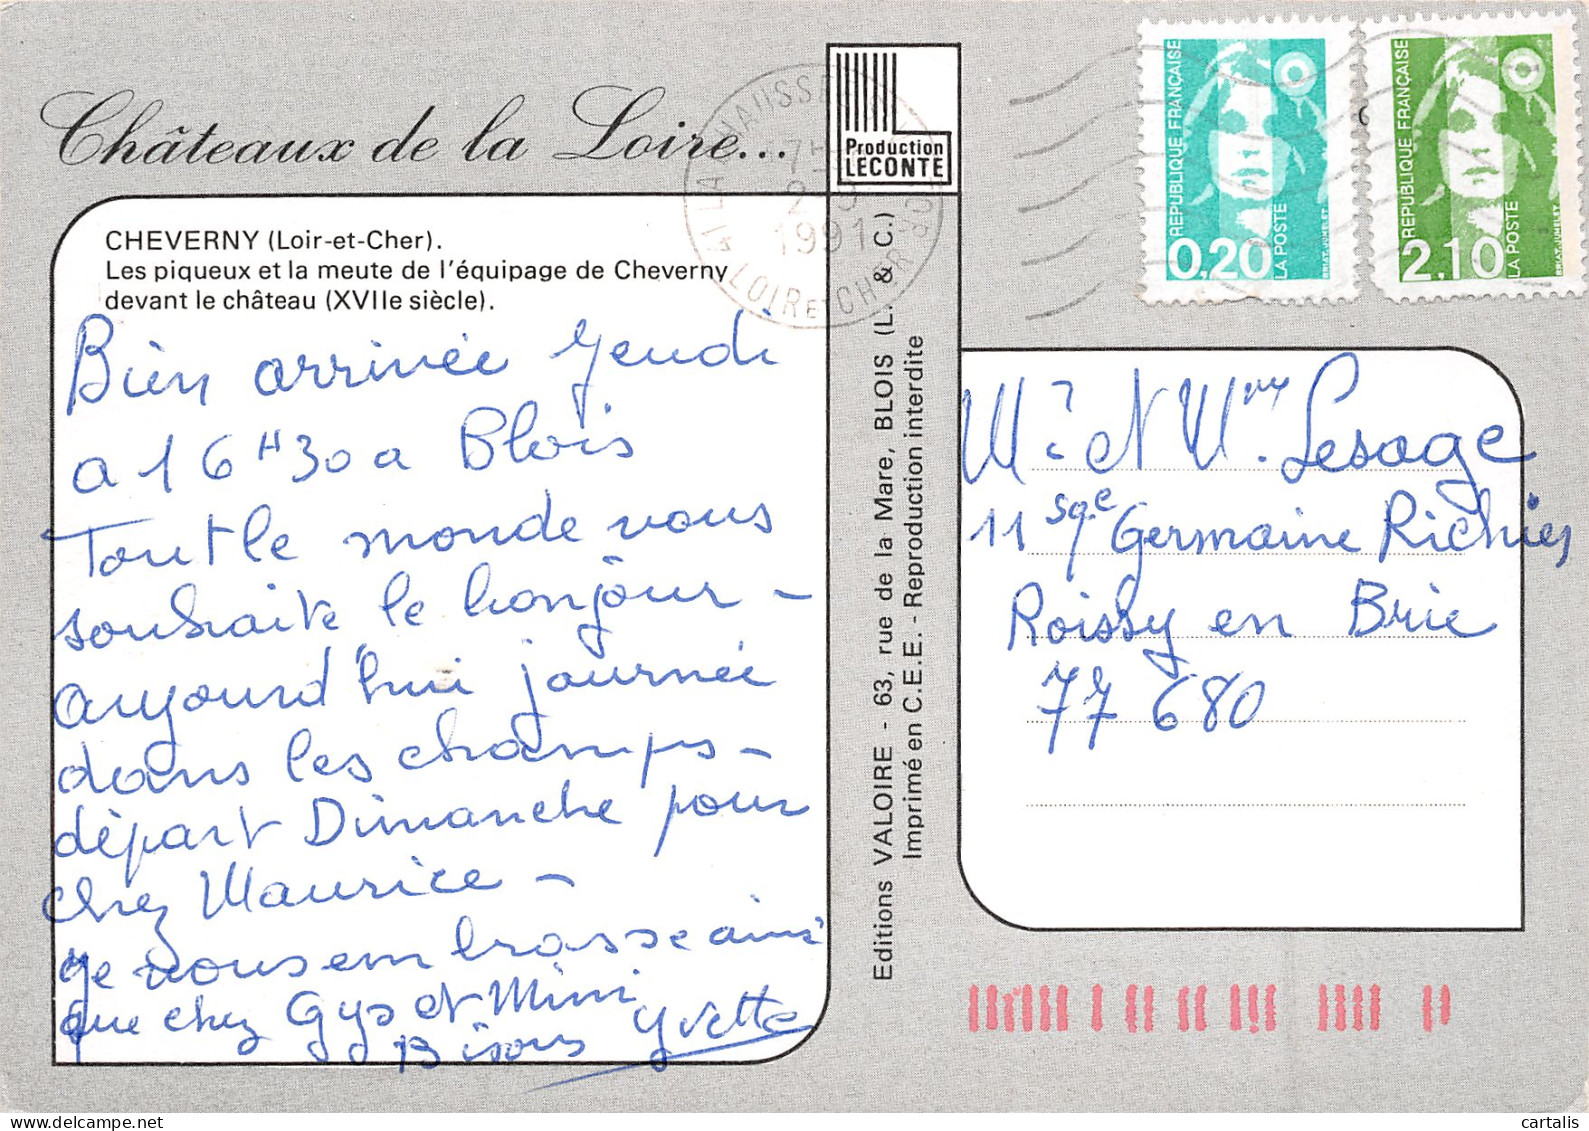 Châteaux de la Loire...
Production
LECONTE
CHEVERNY (Loir-et-Cher).
Les piqueux et la meute de l'équipage de Cheverny
devant le château (XVIIe siècle).
Bien arrivée Jeudi
a 16 H 30 a Blois
Tout le monde vous
souhaite le bonjour –
aujourd'hui journée
dans les champs –
départ Dimanche pour
chez Maurice –
Je vous embrasse ainsi
que chez Gys et Mimi
Bisous Yvette
Editions VALOIRE - 63, rue de la Mare, BLOIS (L. & C.)
Imprimé en C.E.E. - Reproduction interdite
1991
41 LA CHAUSSEE
LOIR ET CHER
REPUBLIQUE FRANÇAISE
0,20
LA POSTE
BRIAT-JUMELET
REPUBLIQUE FRANÇAISE
2,10
LA POSTE
BRIAT-JUMELET
Mr et Mme Lesage
11 sqe Germaine Richier
Roissy en Brie
77 680
cartalis
www.delcampe.net